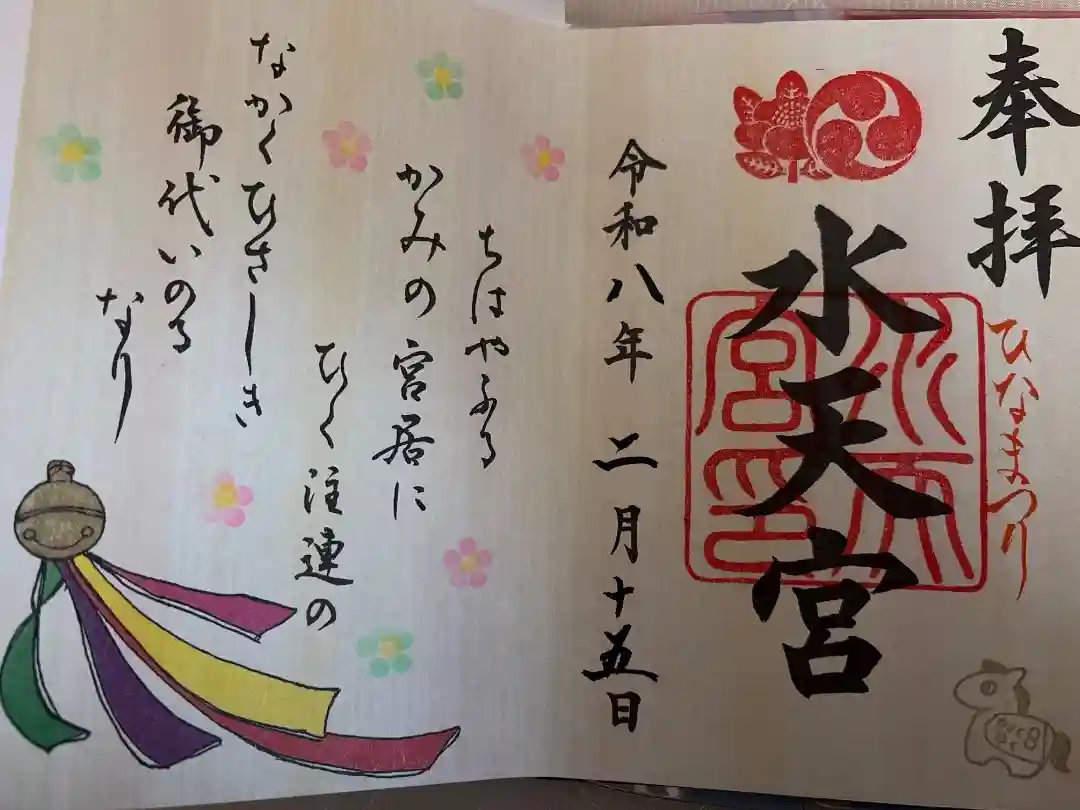 奉拝
ひなまつり
水天宮
水天宮印
令和八年 二月十五日
ちはやふる
かみの宮居に
ひく注連の
なかくひさしき
御代いのる
なり